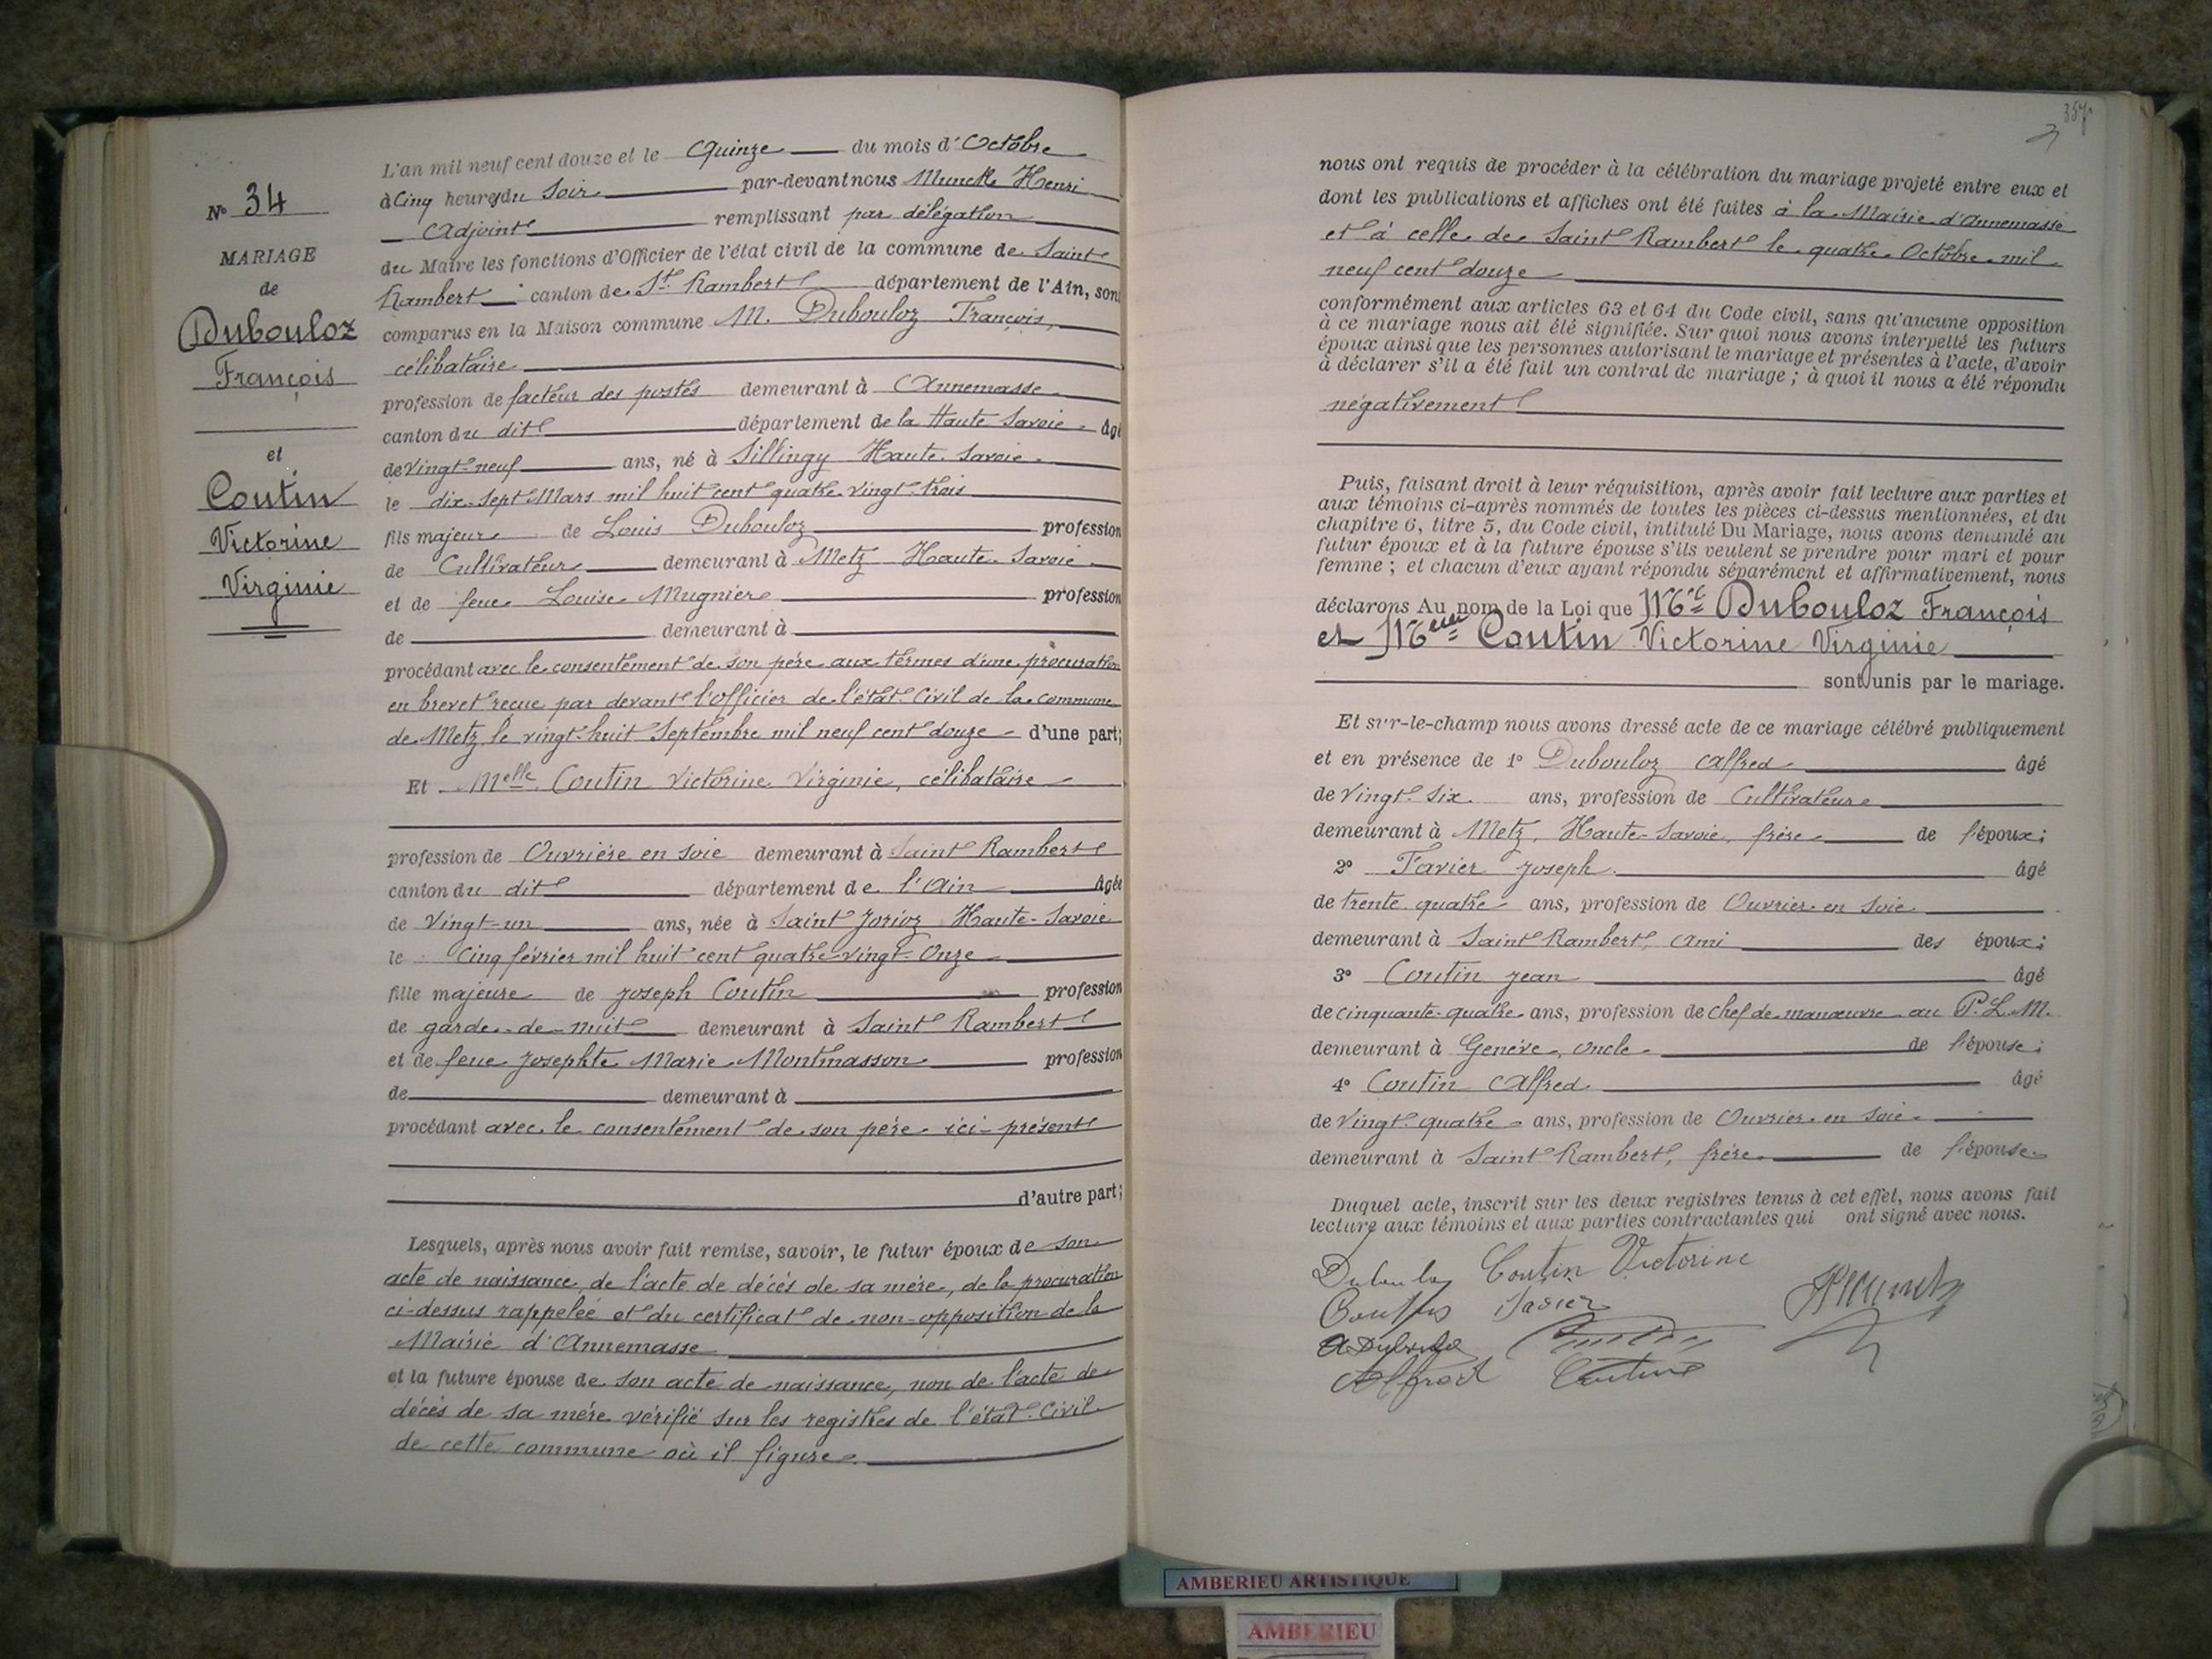 L'an mil neuf cent douze et le Quinze du mois d'Octobre
N° 34
à Cinq heures du Soir par-devant nous Munck Henri
Adjoint remplissant par délégation
MARIAGE
du Maire les fonctions d'Officier de l'état civil de la commune de Saint
de
Rambert canton de St Rambert département de l'Ain, son
Dubouloz
comparus en la Maison commune M. Dubouloz François,
François
célibataire
profession de facteur des postes demeurant à Annemasse
canton du dit département de la Haute Savoie âgé
et
de Vingt-neuf ans, né à Sillingy Haute-Savoie
Coutin
le dix-sept Mars mil huit cent quatre vingt-trois
Victorine
fils majeur de Louis Dubouloz profession
Virginie
de Cultivateur demeurant à Metz Haute-Savoie
et de feue Louise Mugnier profession
de demeurant à
procédant avec le consentement de son père aux termes d'une procuration
en brevet reçue par devant l'officier de l'état Civil de la Commune
de Metz le vingt-huit Septembre mil neuf cent douze d'une part;
Et Melle Coutin Victorine Virginie, célibataire
profession de Ouvrière en soie demeurant à Saint Rambert
canton du dit département de l'Ain âgée
de Vingt-un ans, née à Saint Jorioz Haute-Savoie
le Cinq février mil huit cent quatre-vingt-Onze
fille majeure de Joseph Coutin profession
de garde-de-nuit demeurant à Saint Rambert
et de feue Josephte Marie Montmasson profession
de demeurant à
procédant avec le consentement de son père ici-présent
d'autre part;
Lesquels, après nous avoir fait remise, savoir, le futur époux de son
acte de naissance, de l'acte de décès de sa mère, de la procuration
ci-dessus rappelée et du certificat de non-opposition de la
Mairie d'Annemasse
et la future épouse de son acte de naissance, non de l'acte de
décès de sa mère vérifié sur les registres de l'état-Civil
de cette commune où il figure.
357
nous ont requis de procéder à la célébration du mariage projeté entre eux et
dont les publications et affiches ont été faites à la Mairie d'Annemasse
et à celle de Saint Rambert le quatre Octobre mil
neuf cent douze
conformément aux articles 63 et 64 du Code civil, sans qu'aucune opposition
à ce mariage nous ait été signifiée. Sur quoi nous avons interpellé les futurs
époux ainsi que les personnes autorisant le mariage et présentes à l'acte, d'avoir
à déclarer s'il a été fait un contrat de mariage ; à quoi il nous a été répondu
négativement
Puis, faisant droit à leur réquisition, après avoir fait lecture aux parties et
aux témoins ci-après nommés de toutes les pièces ci-dessus mentionnées, et du
chapitre 6, titre 5, du Code civil, intitulé Du Mariage, nous avons demandé au
futur époux et à la future épouse s'ils veulent se prendre pour mari et pour
femme ; et chacun d'eux ayant répondu séparément et affirmativement, nous
déclarons Au nom de la Loi que Dubouloz François
et Coutin Victorine Virginie
sont unis par le mariage.
Et sur-le-champ nous avons dressé acte de ce mariage célébré publiquement
et en présence de 1° Dubouloz Alfred âgé
de Vingt-six ans, profession de Cultivateur
demeurant à Metz, Haute-Savoie, frère de l'époux;
2° Favier Joseph âgé
de trente quatre ans, profession de Ouvrier en Soie
demeurant à Saint Rambert, Ami des époux;
3° Coutin Jean âgé
de cinquante-quatre ans, profession de Chef de manœuvre au P. L. M.
demeurant à Genève, oncle de l'épouse;
4° Coutin Alfred âgé
de Vingt-quatre ans, profession de Ouvrier en Soie
demeurant à Saint Rambert, frère de l'épouse
Duquel acte, inscrit sur les deux registres tenus à cet effet, nous avons fait
lecture aux témoins et aux parties contractantes qui ont signé avec nous.
Coutin Victorine
Favier
Alfred Coutin
AMBERIEU ARTISTIQUE
AMBERIEU